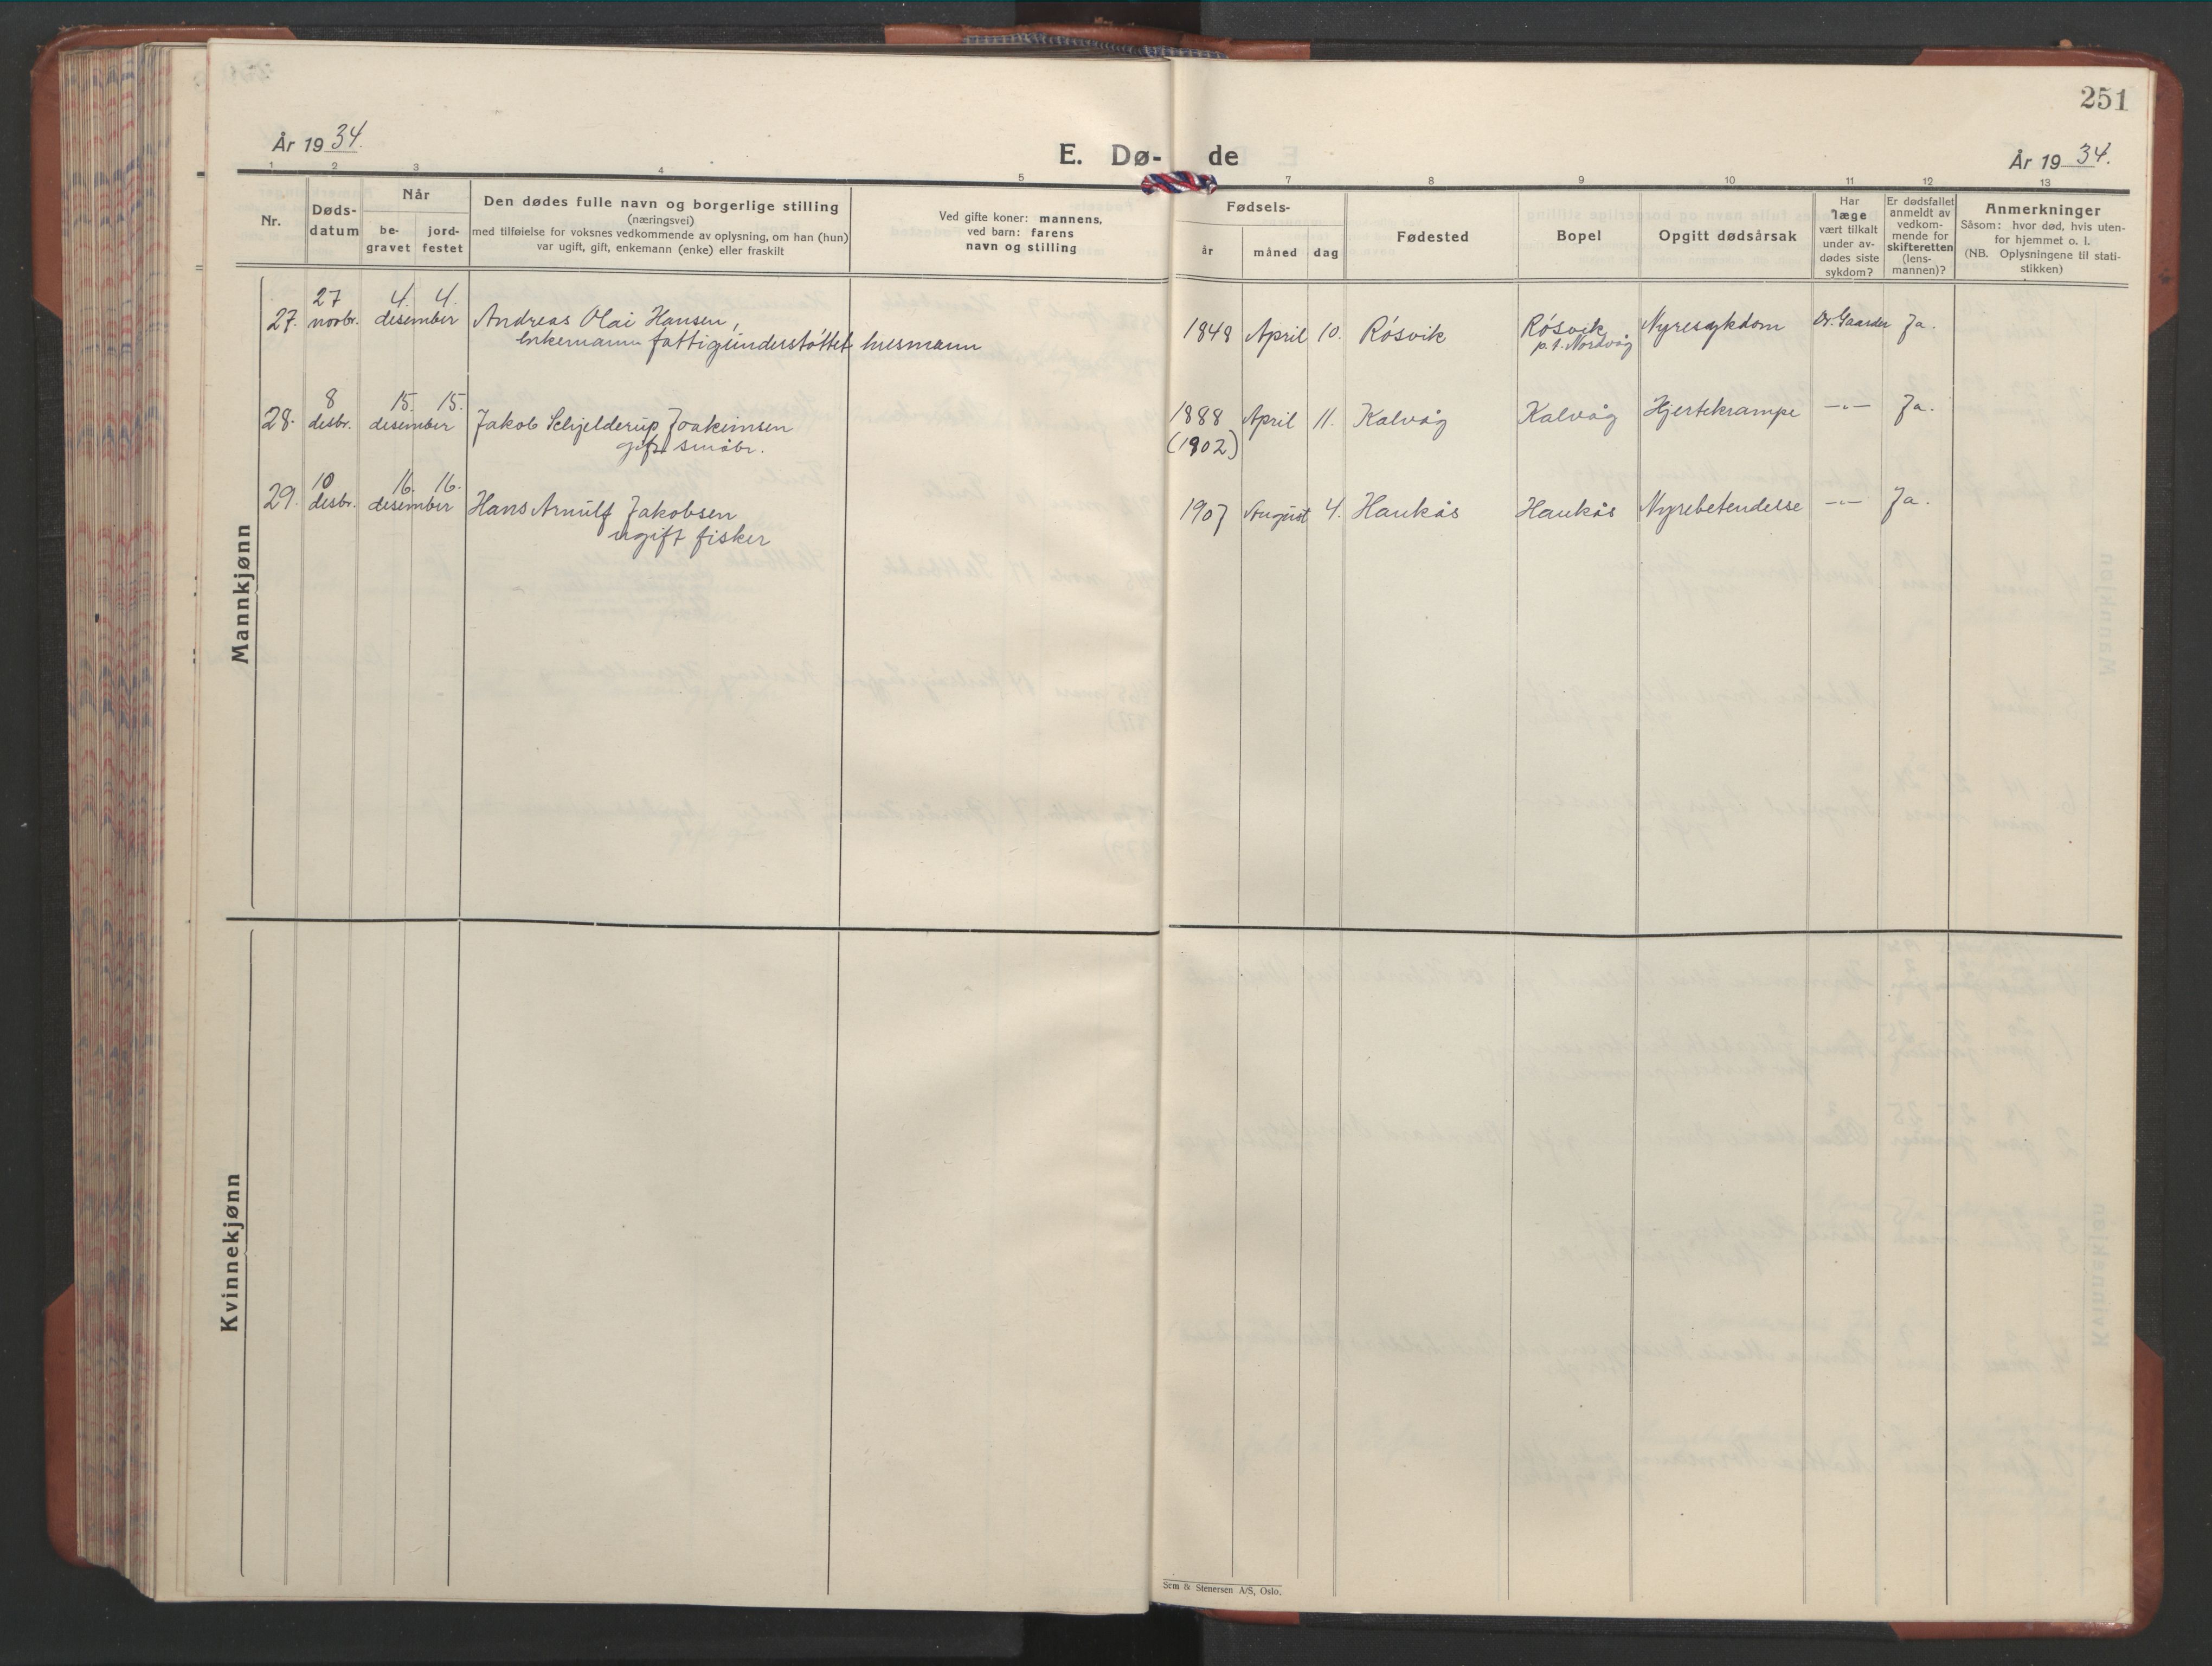 251
År 1934.
E. Dø- de
År 1934.
1 2 3 4 5 7 8 9 10 11 12 13
Nr.
Døds-
datum
Når
be-
gravet
jord-
festet
Den dødes fulle navn og borgerlige stilling
(næringsvei)
med tilføielse for voksnes vedkommende av oplysning, om han (hun)
var ugift, gift, enkemann (enke) eller fraskilt
Ved gifte koner: mannens,
ved barn: farens
navn og stilling
Fødsels-
år måned dag
Fødested
Bopel
Opgitt dødsårsak
Har
læge
vært tilkalt
under av-
dødes siste
sykdom?
Er dødsfallet
anmeldt av
vedkom-
mende for
skifteretten
(lens-
mannen)?
Anmerkninger
Såsom: hvor død, hvis uten-
for hjemmet o. l.
(NB. Oplysningene til stati-
stikken)
Mannkjønn
27 4. 4.
27. novbr. desember Andreas Olai Hansen, 1848 April 10. Røsvik Røsvik Nyresykdom Dr. Gaarder Ja.
Enkemann fattigunderstøttet husmann p.t. Nordvåg
8 15. 15.
28. desbr. desember Jakob Schjelderup Joakimsen 1888 April 11. Kalvåg Kalvåg Hjertekrampe -"- Ja.
gift småbr. (1902)
10 16. 16.
29. desbr. desember Hans Arnulf Jakobsen 1907 August 4. Haukås Haukås Nyrebetendelse -"- Ja.
ugift fisker
Kvinnekjønn
Sem & Stenersen A/S, Oslo.